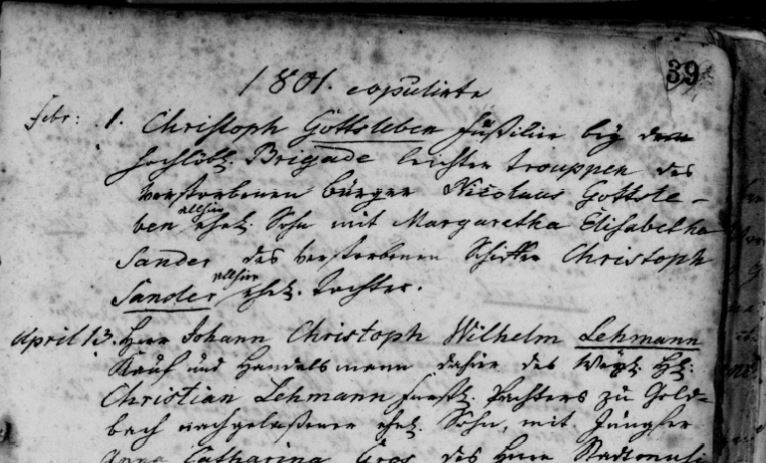 39
1801. copulirte
Febr: 1. Christoph Gottsleben Füßilier bey dem
hochlöbl. Brigade leichter trouppen des
verstorbenen bürger Nicolaus Gottsle-
ben allhier ehel. Sohn mit Margaretha Elisabetha
Sander des verstorbenen Christoph
Sander allhier ehel. Tochter.
April 13. Herr Johann Christoph Wilhelm Lehmann
Kauf und Handelsmann dahier des
Christian Lehmann Pachters zu Gold=
bach nachgelaßener ehel. Sohn, mit Jungfer
Anna Catharina des Herrn